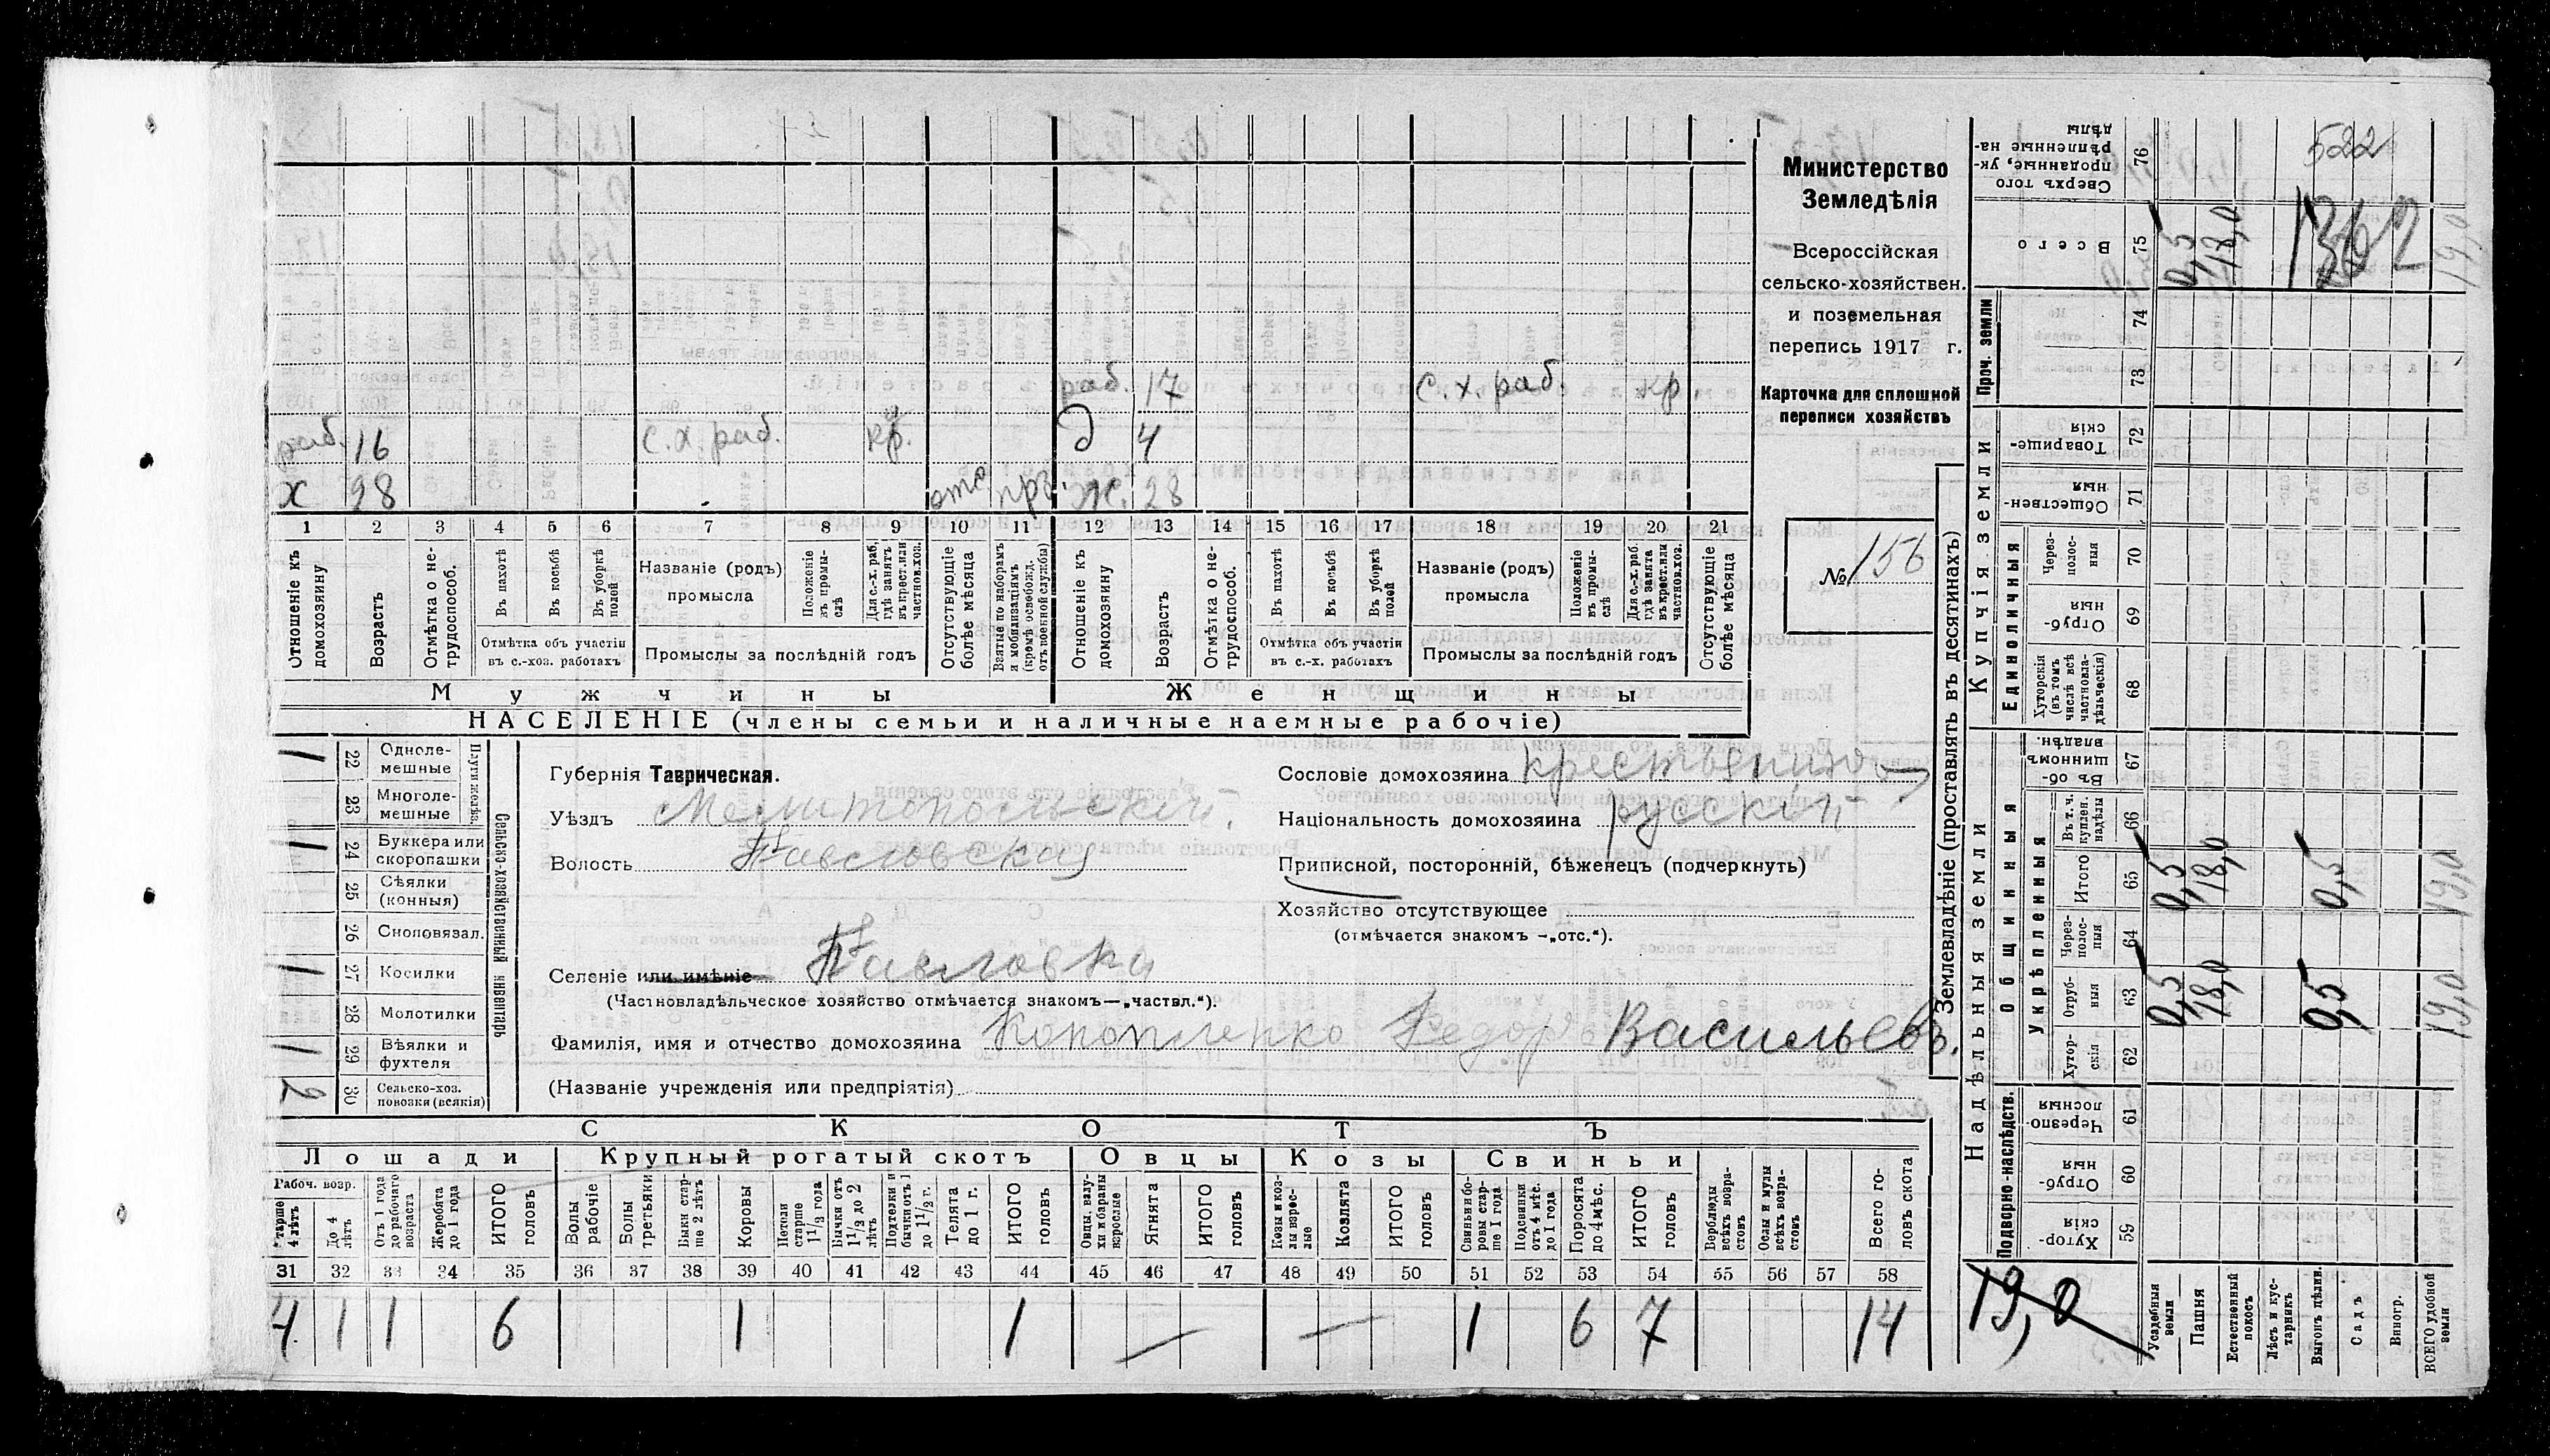 522
1362
Министерство
Земледѣлія
Всероссійская
сельско-хозяйствен.
и поземельная
перепись 1917 г.
Карточка для сплошной
переписи хозяйствъ
№ 156
раб. 17 с. х. раб. кр.
раб. 16 с. х. раб. кр. д 4
х 28 отс. прз. ж. 28
1 2 3 4 5 6 7 8 9 10 11 12 13 14 15 16 17 18 19 20 21
Отношеніе къ домохозяину
Возрастъ
Отмѣтка о не-трудоспособ.
Въ пахотѣ
Въ косьбѣ
Въ уборкѣ полей
Отмѣтка объ участіи
въ с.-хоз. работахъ
Названіе (родъ)
промысла
Положеніе въ промы-слѣ
Для с.-х. раб. гдѣ занятъ въ крест. или частнов. хоз.
Промыслы за послѣдній годъ
Отсутствующіе болѣе мѣсяца
Взятые по наборамъ и мобилизаціямъ (кромѣ освобожд. отъ военной службы)
Отношеніе къ домохозяину
Возрастъ
Отмѣтка о не-трудоспособ.
Въ пахотѣ
Въ косьбѣ
Въ уборкѣ полей
Отмѣтка объ участіи
въ с.-х. работахъ
Названіе (родъ)
промысла
Положеніе въ промы-слѣ
Для с.-х. раб. гдѣ занята въ крест. или частнов. хоз.
Промыслы за послѣдній годъ
Отсутствующіе болѣе мѣсяца
Мужчины Женщины
НАСЕЛЕНІЕ (члены семьи и наличные наемные рабочіе)
1 22 Одноле-мешные
23 Многоле-мешные
Плуги желѣз.
1 24 Буккера или скоропашки
25 Сѣялки (конныя)
26 Сноповязал.
1 27 Косилки
28 Молотилки
1 29 Вѣялки и фухтеля
2 30 Сельско-хоз. повозки (всякія)
Сельско-хозяйственный инвентарь
Губернія Таврическая.
Уѣздъ Мелитопольскій.
Волость Павловская
Селеніе или имѣніе Павловка
(Частновладѣльческое хозяйство отмѣчается знакомъ—„частвл.“).
Фамилія, имя и отчество домохозяина Конопленко Федор Васильевъ.
(Названіе учрежденія или предпріятія)
Сословіе домохозяина крестьянинъ
Національность домохозяина русскій
Приписной, посторонній, бѣженецъ (подчеркнуть)
Хозяйство отсутствующее
(отмѣчается знакомъ -„отс.“).
СКОТЪ
Лошади Крупный рогатый скотъ Овцы Козы Свиньи
Рабоч. возр.
Старше 4 лѣтъ
До 4 лѣтъ
Отъ 1 года до рабочаго возраста
Жеребята до 1 года
ИТОГО головъ
Волы рабочіе
Волы третьяки
Быки стар-ше 2 лѣтъ
Коровы
Нетели старше 1½ года
Бычки отъ 1½ до 2 лѣтъ
Подтелки и бычки отъ 1 до 1½ г.
Телята до 1 г.
ИТОГО головъ
Овцы, валу-хи и бараны взрослые
Ягнята
ИТОГО головъ
Козы и коз-лы взрос-лые
Козлята
ИТОГО головъ
Свиньи и бо-ровы стар-ше 1 года
Подсвинки отъ 4 мѣс. до 1 года
Поросята до 4 мѣс.
ИТОГО головъ
Верблюды всѣхъ возра-стовъ
Ослы и мулы всѣхъ возра-стовъ
Всего го-ловъ скота
31 32 33 34 35 36 37 38 39 40 41 42 43 44 45 46 47 48 49 50 51 52 53 54 55 56 57 58
4 1 1 6 1 1 — — 1 6 7 14
Землевладѣніе (проставлять въ десятинахъ)
Надѣльныя земли
Купчія земли
Проч. земли
Подворно-наслѣдств.
Общинныя
Укрѣпленныя
Единоличныя
76 Сверхъ того проданные, ук-рѣпленные на-дѣлы
75 Всего 0,5 18,0 19,0
74
73
72 Товарище-скія
71 Обществен-ныя
70 Через-полос-ныя
69 Отруб-ныя
68 Хуторскія (въ томъ числѣ всѣ частновла-дѣльческія)
67 Въ об-щинномъ владѣн.
66 Въ т. ч. куплен. надѣлы
65 Итого 0,5 18,0 0,5 19,0
64 Через-полос-ныя
63 Отруб-ныя 0,5 18,0 0,5 19,0
62 Хутор-скія
61 Черезпо-лосныя
60 Отруб-ныя
59 Хутор-скія
19,0
Усадебныя земли
Пашня
Естественный покосъ
Лѣсъ и кус-тарникъ
Выгонъ цѣлин.
Садъ
Виногр.
ВСЕГО удобной земли